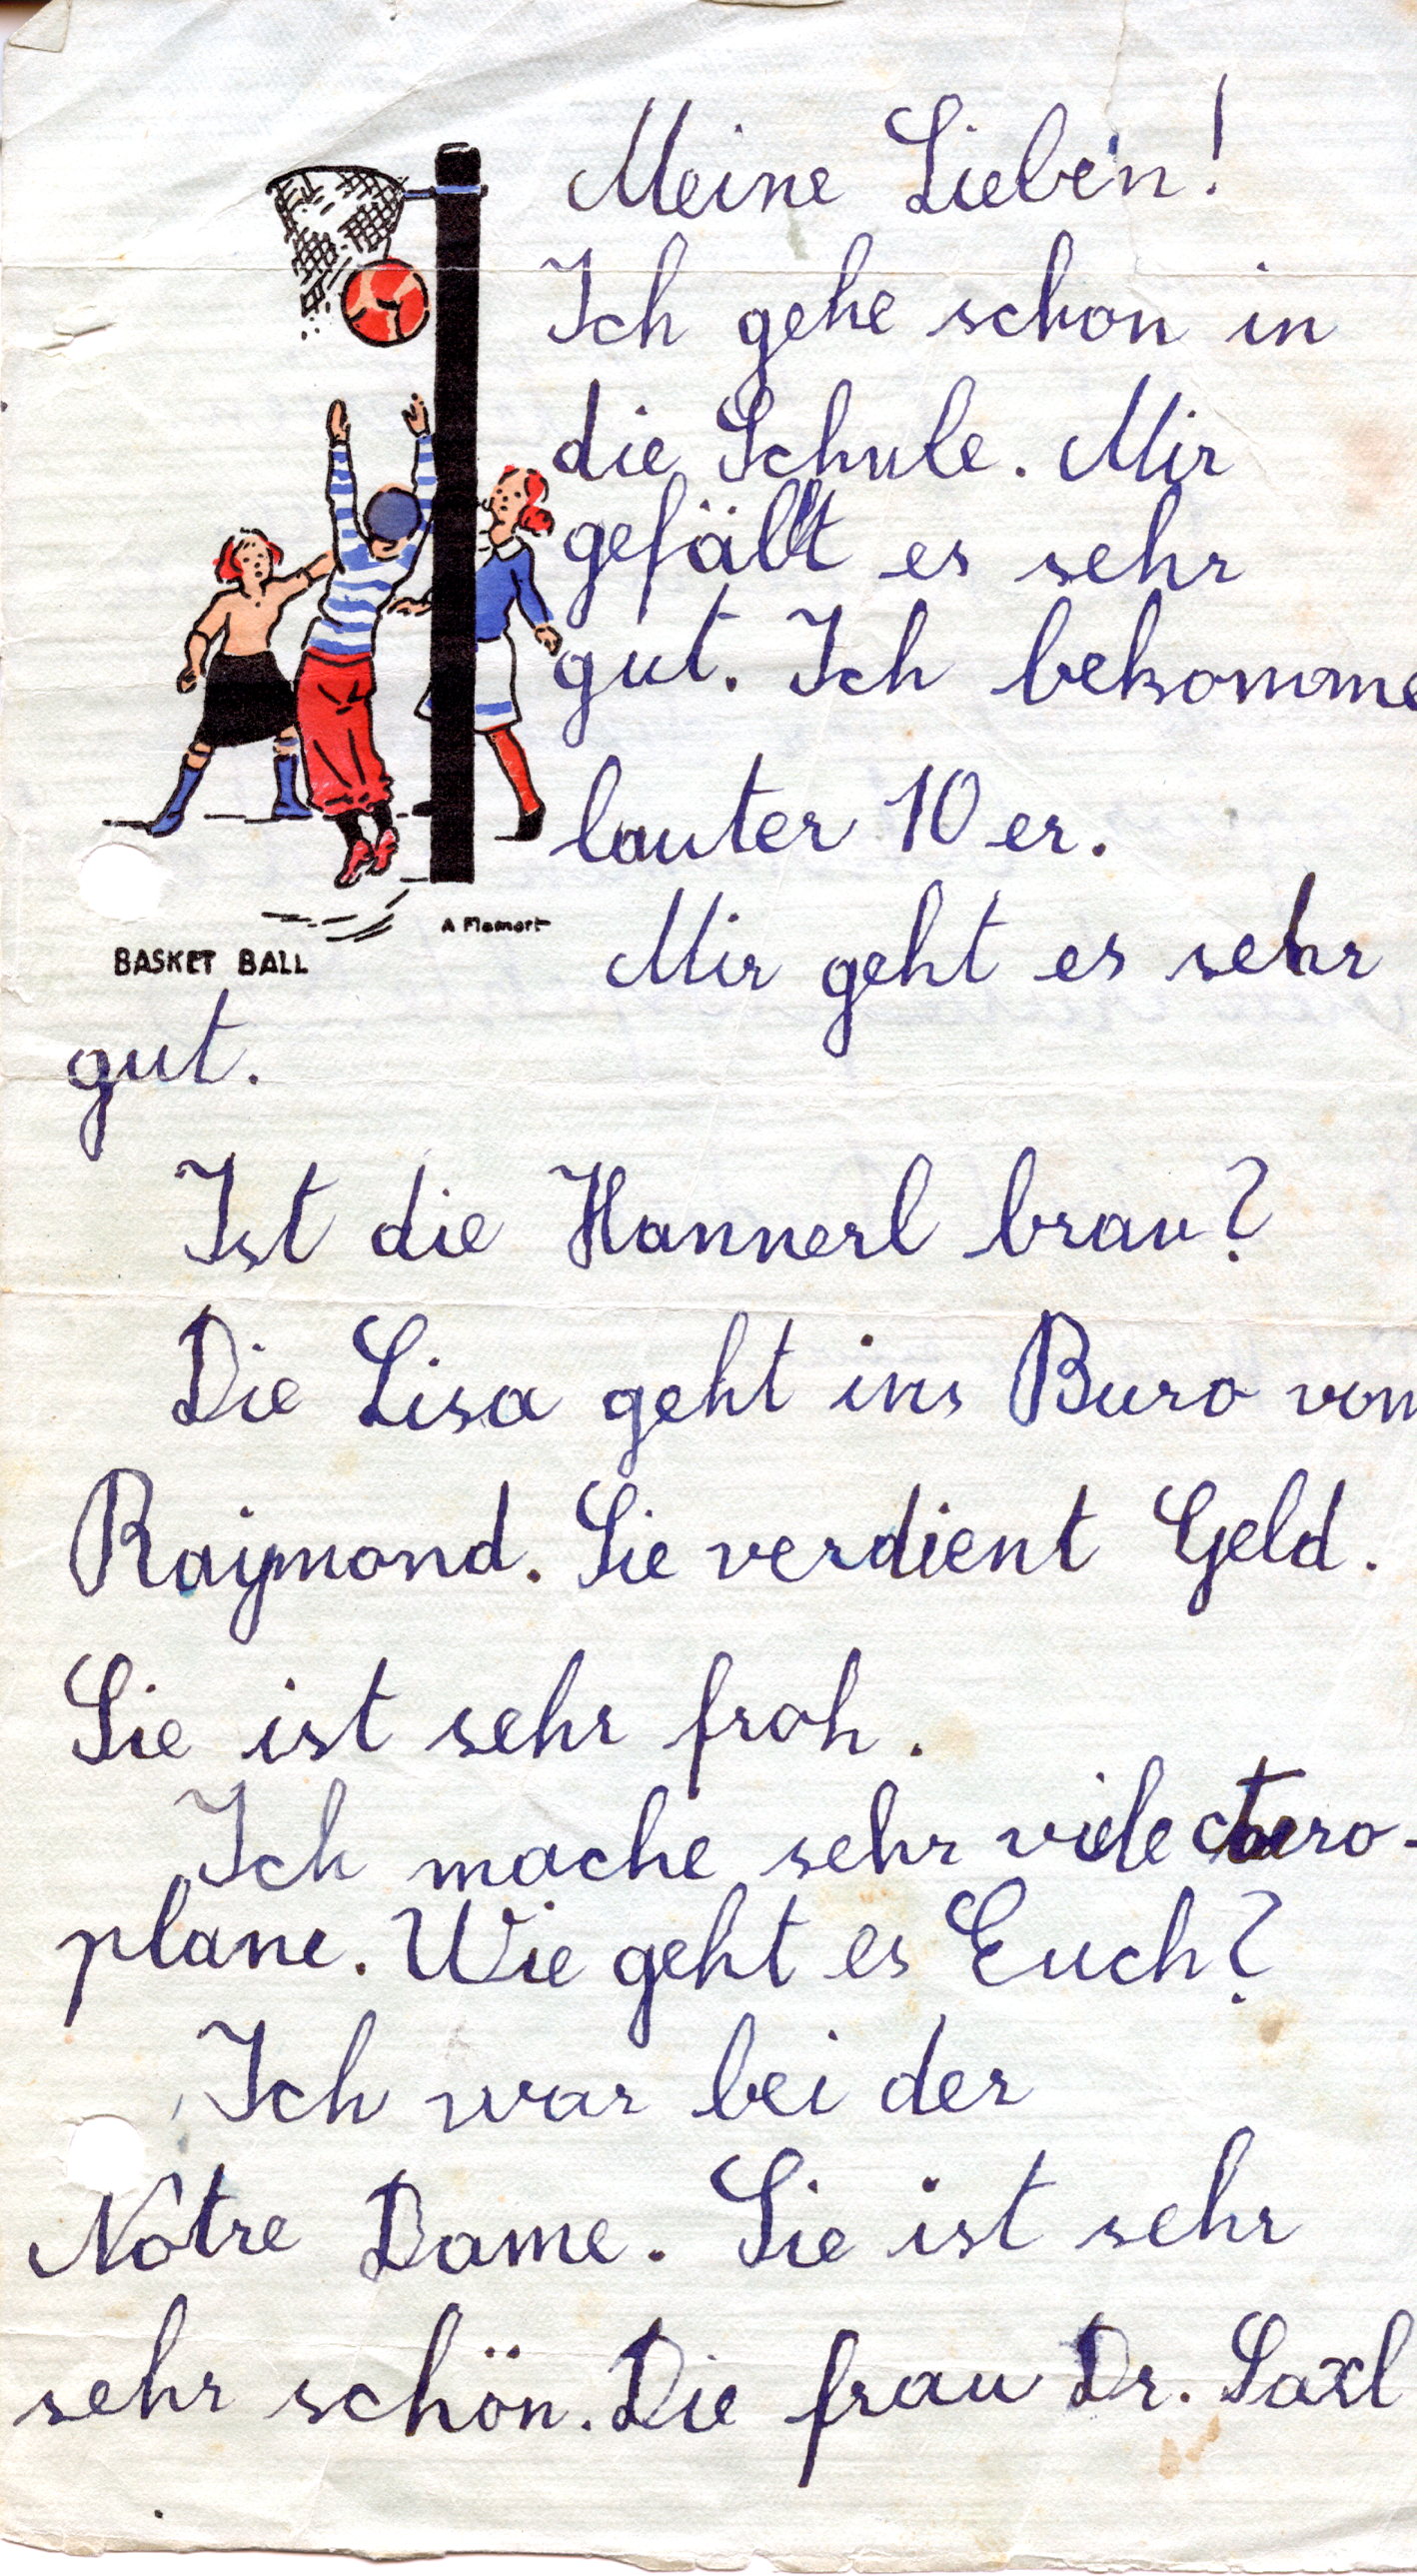 Meine Lieben!
Ich gehe schon in
die Schule. Mir
gefällt es sehr
gut. Ich bekomme
lauter 10er.
A Flamart
BASKET BALL
Mir geht es sehr
gut.
Ist die Hannerl brav?
Die Lisa geht ins Buro vom
Raymond. Sie verdient Geld.
Sie ist sehr froh.
Ich mache sehr viele Aero-
plane. Wie geht es Euch?
Ich war bei der
Nôtre Dame. Sie ist sehr
sehr schön. Die frau Dr. Saxl